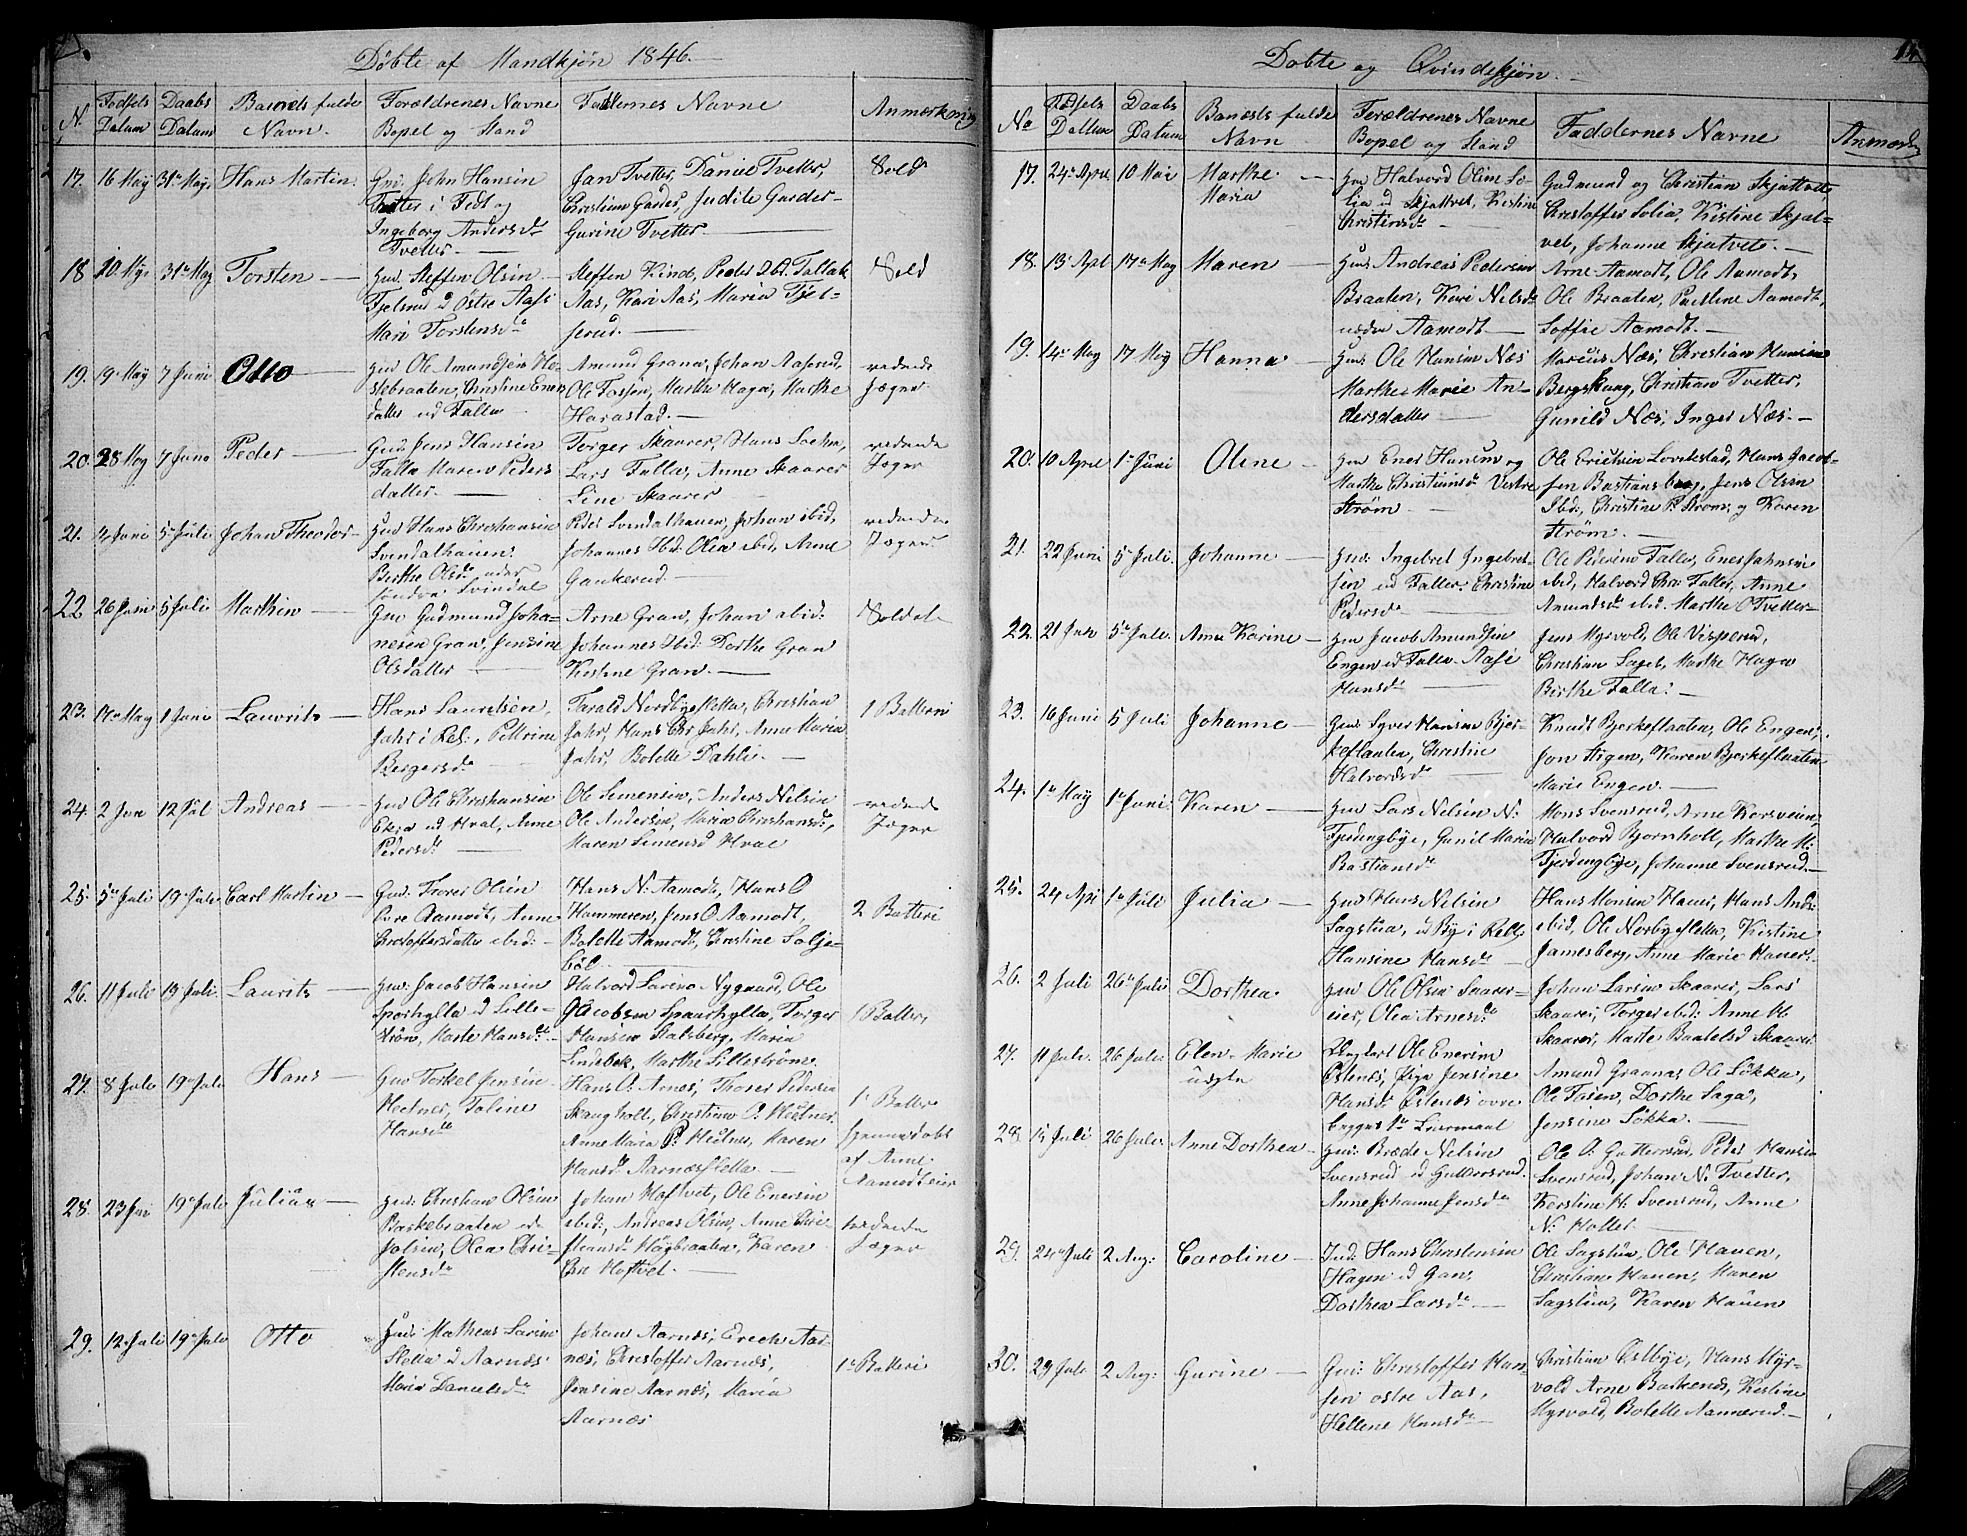 Døbte af Mandkjøn 1846.
N. Fødsels Datum Daabs Datum Barnets fulde Navn. Forældrenes Navne Bopel og Stand Faddernes Navne Anmærkning
17. 16 May 31te May Hans Martin. Gmd. John Hansen
Tvetter i Fedt og
Ingeborg Andersd.
Tvetter.
Jan Tvetter, Daniel Tvetter,
Christian Garder, Judite Garder
Gurine Tvetter.
Sold
18 10 May 31te May Torsten Gmd. Steffen Olsen
Fjelsrud Østre Aas
Mari Torstensd.
Steffen Kind, Peder Ibd. Tallak
Aas, Kari Aas, Maria Fjel-
serud.
Sold
19. 19 May 7 Juni Otto Gmd Ole Amundsen
Christine Ener
datter Falla
Amund Grana, Johan Aaserud,
Ole Fosen, Marthe Haga, Marthe
Harastad.
redende
Jæger
20. 28 May 7 Juni Peder Gmd Jens Hansen
Falla Maren Peders
datter.
Torger Skaarer, Hans Soehn,
Lars Falla, Anne Skaarer
Line Skaarer
redende
Jæger
21. 4 Juni 5 Juli Johan Theodor Gmd Hans Christiansen
Svendalhauen
Berthe Olsd.
søndre Svindal
Peder Svendalhauen, Johan ibid,
Johannes Ibd. Olea ibid, Anne
Gaukerud.
redende
Jæger
22. 26 Juni 5 Juli Mathias Gmd Gudmund Joha-
nesen Gran, Jensine
Olsdatter
Arne Gran, Johan ibid.
Johannes Ibd. Dorthe Gran
Kistine Gran.
Soldat
23. 14 May 1 Juni Laurits Hans Lauritsen,
Jahr i Rel:, Pettrine
Bergersd.
Tarald Nordbysletta, Christian
Jahr, Hans Chr Jahr, Anne Maria
Jahr, Bolette Dahli.
1 Batteri
24. 2 Jun 12 Jul Andreas Gmd Ole Christiansen
Ekra Hval, Anne
Pedersd.
Ole Simensen, Anders Nilsen
Ole Andersen, Maria Christiansd.,
Maren Simensd Hval
redende
Jæger
25. 5te Juli 19 Juli Carl Martin Gmd. Torer Olsen
Aamodt, Anne
Christoffersdatter ibid:
Hans N: Aamodt, Hans O
Hammeren, Jens O Aamodt,
Bolette Aamodt, Christine Solje-
böl.
2 Batteri
26. 11 Juli 19 Juli Laurits Gmd: Jacob Hansen
Sporhylla Lille-
strøm, Marte Hansd.
Halvord Larsen Nygaard, Ole
Jacobsen Spaarhylla, Torger
Hansen Stalsberg, Maria
Lindebek, Marthe Lillestrøm.
1 Batteri
27. 8 Juli 19 Juli Hans Gmd Torkel Jensen
Hectner, Toline
Hansd.
Hans O. Arnes, Thorer Pedersen
Skaugholt, Christian O. Hectner
Anne Maria P. Hectner, Karen
Hansd. Aarnæsletta.
1 Batteri
hjemmedøbt
af Anne
Aamodteier
28. 23 Juni 19 Juli Julius Gmd: Christian Olsen
Baskebraaten
Jølsen, Olea Chri-
stensd.
Johan Hoftvet, Ole Enersen
ibid, Andreas Olsen, Anne Chri-
stiansd. Høgbraaten, Karen
Hoftvet.
redende
Jæger
29. 12 Juli 19 Juli Otto Gmd: Matheus Larsen
Sletta Aarnæs
Maria Danielsd.
Johan Aarnæs, Erich Aar-
næs, Christoffer Aarnæs,
Jensine Aarnæs, Maria
Aarnæs
1te Batteri
14
Døbte og Qvindekjøn.
No Fødsels Dattum Daabs Datum Barnets fulde Navn Forældrenes Navne Bopel og Stand Faddernes Navne Anmærk
17. 24 Apr. 10 Mai Marthe
Maria
Gm Halvord Olsen So-
lia Skjattvet, Kistine
Christensd.
Gudmund og Christian Skjattvet,
Christoffer Solia, Kistine Skjat-
vet, Johanne Skjatvet.
18. 13 Apl 17 May Maren Gmd: Andreas Pedersen
Braaten, Kari Nilsd.
nedre Aamodt
Arne Aamodt, Ole Aamodt,
Ole Braaten, Pauline Aamodt,
Soffie Aamodt.
19. 14 May 17 May Hanna Gmd: Ole Hansen Næs
Marthe Marie An-
dersdatter
Marcus Næs, Christian Hansen
Bergskaug, Christian Tvetter,
Gunild Næs, Inger Næs.
20. 10 April 1 Juni Oline Gm Ener Hansen og
Marthe Christiansd. Vestre
Strøm
Ole Erichsen Lovelestad, Hans Jacob-
sen Bastiansberg, Jens Olsen
Ibd:, Christine P. Strøm, og Karen
Strøm.
21. 22 Juni 5 Juli. Johanne Gmd: Ingebret Ingebret-
sen Faller. Christine
Pedersd.
Ole Pedersen Faller, Ener Johnsen
ibid, Halvord Chr. Faller, Anne
Amundsd. ibid. Marthe O Tvetter
22. 21 Juni 5 Juli. Anne Karine Gm Jacob Amundsen
Engen Falla. Aase
Hansd.
Jens Myrvold, Ole Visperud,
Christian Sager, Marthe Haga
Berthe Falla.
23. 16 Juni 5 Juli Johanne Gmd: Syver Hansen Bjer-
keflaaten, Christine
Halvorsd.
Knudt Bjerkeflaaten, Ole Engen,
Jon Stigen, Karen Bjerkeflaaten
Marie Engen.
24. 1te May 1te Juni Karen Gm Lars Nilsen N:
Fjerdingbye, Gunil Maria
Bastiansd.
Mons Svensrud, Arne Korsveien,
Halvord Bjørnholt, Marthe M.
Fjerdingbye, Johanne Svensrud.
25. 24 Apri 1te Juli Julia Gmd Hans Nilsen
Sagstua, By i Reli
Hansine Hansd.
Hans Monsen Hauer, Hans Andr:
ibid, Ole Norbysletta, Kistine
Jamesberg, Anne Marie Hauer.
26. 2 Juli 26 Juli Dorthea Gm Ole Olsen Skarer-
eier, Olea Arnesd.
Johan Larsen Skaarer, Lars
Skaarer, Torger ibid: Anne M.
Skaarer, Marte Skaarer
27. 11 Juli. 26 Juli Elen Marie
uægte
Ungkarl Ole Enersen
Østenes, Pige Jensine
Hansd. Østenes øvre
begges 1te Leiermaal
Amund Graana, Ole Løkka,
Ole Fosen, Dorthe Saga,
Jensine Løkka.
28. 15 Juli 26 Juli Anne Dorthea Gm: Brede Nilsen
Svensrud Gullersrud.
Anne Johanne Jensd.
Ole O: Gullersrud, Peder Hansen
Svensrud, Johan N. Tvetter,
Kerstine H. Svensrud, Anne
N. Holter
29. 24 Juli 2 Aug: Caroline Ind: Hans Christensen
Hagen Gan,
Dorthea Larsd.
Ole Sagstua, Ole Hauen,
Christian Hauen, Maren
Sagstua, Karen Hauen
30. 29 Juli 2 Aug: Gurine Gm: Christoffer Han-
sen østre Aas,
Hellene Hansd.
Christian Østbye, Hans Myr-
vold Arne Bakkenes, Kistine
Myrvold, Bolette Aamerud.